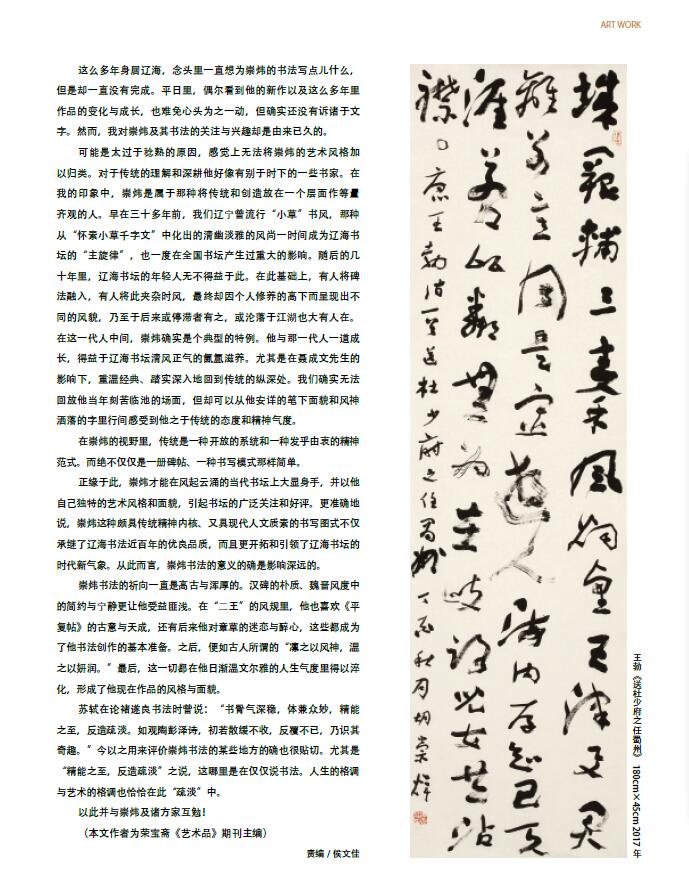 ART WORK
这么多年身居辽海，念头里一直想为崇炜的书法写点儿什么，
但是却一直没有完成。平日里，偶尔看到他的新作以及这么多年里
作品的变化与成长，也难免心头为之一动，但确实还没有诉诸于文
字。然而，我对崇炜及其书法的关注与兴趣却是由来已久的。
可能是太过于稔熟的原因，感觉上无法将崇炜的艺术风格加
以归类。对于传统的理解和深耕他好像有别于时下的一些书家。在
我的印象中，崇炜是属于那种将传统和创造放在一个层面作等量
齐观的人。早在三十多年前，我们辽宁曾流行“小草”书风，那种
从“怀素小草千字文”中化出的清幽淡雅的风尚一时间成为辽海书
坛的“主旋律”，也一度在全国书坛产生过重大的影响。随后的几
十年里，辽海书坛的年轻人无不得益于此。在此基础上，有人将碑
法融入，有人将此夹杂时风，最终却因个人修养的高下而呈现出不
同的风貌，乃至于后来或停滞者有之，或沦落于江湖也大有人在。
在这一代人中间，崇炜确实是个典型的特例。他与那一代人一道成
长，得益于辽海书坛清风正气的氤氲滋养。尤其是在聂成文先生的
影响下，重温经典、踏实深入地回到传统的纵深处。我们确实无法
回放他当年刻苦临池的场面，但却可以从他安详的笔下面貌和风神
洒落的字里行间感受到他之于传统的态度和精神气度。
在崇炜的视野里，传统是一种开放的系统和一种发乎由衷的精神
范式。而绝不仅仅是一册碑帖、一种书写模式那样简单。
正缘于此，崇炜才能在风起云涌的当代书坛上大显身手，并以他
自己独特的艺术风格和面貌，引起书坛的广泛关注和好评。更准确地
说，崇炜这种颇具传统精神内核、又具现代人文质素的书写图式不仅
承继了辽海书法近百年的优良品质，而且更开拓和引领了辽海书坛的
时代新气象。从此而言，崇炜书法的意义的确是影响深远的。
崇炜书法的祈向一直是高古与浑厚的。汉碑的朴质、魏晋风度中
的简约与宁静更让他受益匪浅。在“二王”的风规里，他也喜欢《平
复帖》的古意与天成，还有后来他对章草的迷恋与醉心，这些都成为
了他书法创作的基本准备。之后，便如古人所谓的“凛之以风神，温
之以妍润。”最后，这一切都在他日渐温文尔雅的人生气度里得以淬
化，形成了他现在作品的风格与面貌。
苏轼在论褚遂良书法时曾说：“书骨气深稳，体兼众妙，精能
之至，反造疏淡。如观陶彭泽诗，初若散缓不收，反覆不已，乃识其
奇趣。”今以之用来评价崇炜书法的某些地方的确也很贴切。尤其是
“精能之至，反造疏淡”之说，这哪里是在仅仅说书法。人生的格调
与艺术的格调也恰恰在此“疏淡”中。
以此并与崇炜及诸方家互勉！
（本文作者为荣宝斋《艺术品》期刊主编）
责编 / 侯文佳
城阙辅三秦风烟望五津与君
离别意同是宦游人海内存知己天
涯若比邻无为在歧路儿女共沾
襟。唐王勃诗一首送杜少府之任蜀州丁酉秋月胡崇炜
王勃《送杜少府之任蜀州》 180cm×45cm 2017 年